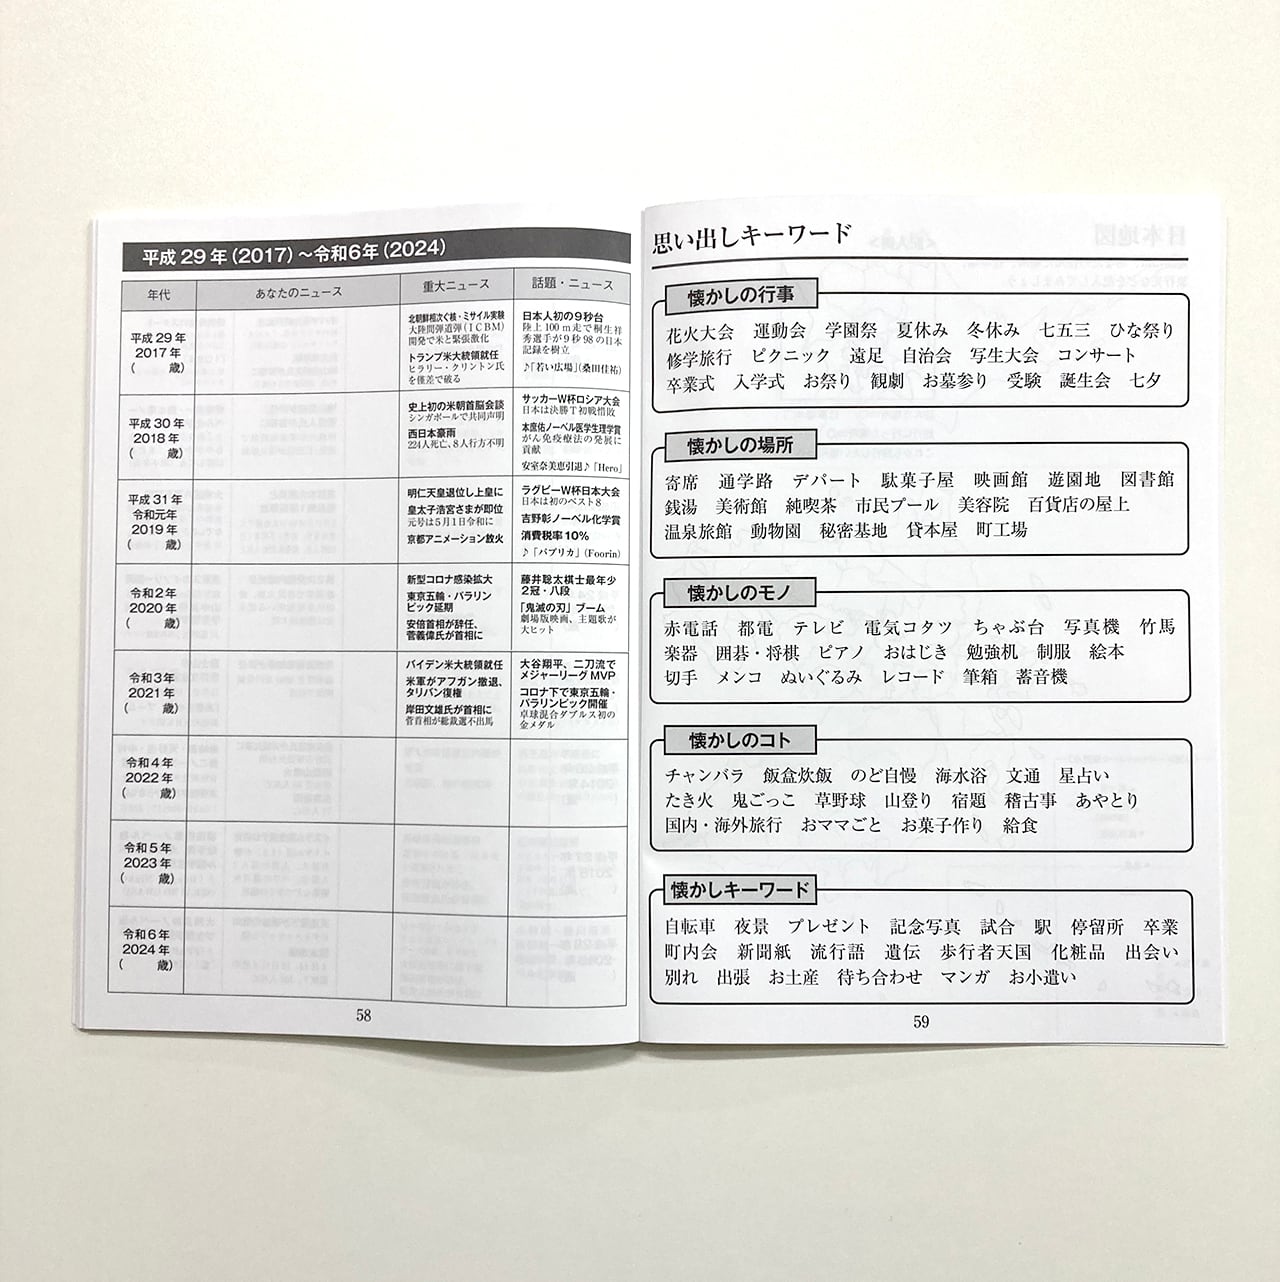 平成29年(2017)〜令和6年(2024)
年代 あなたのニュース 重大ニュース 話題・ニュース
平成29年
2017年
( 歳)
北朝鮮相次ぐ核・ミサイル実験
大陸間弾道弾(ICBM)
開発で米と緊張激化
トランプ米大統領就任
ヒラリー・クリントン氏
を僅差で破る
日本人初の9秒台
陸上100m走で桐生祥
秀選手が9秒98の日本
記録を樹立
♪「若い広場」(桑田佳祐)
平成30年
2018年
( 歳)
史上初の米朝首脳会談
シンガポールで共同声明
西日本豪雨
224人死亡、8人行方不明
サッカーW杯ロシア大会
日本は決勝T初戦惜敗
本庶佑ノーベル医学生理学賞
がん免疫療法の発展に
貢献
安室奈美恵引退♪「Hero」
平成31年
令和元年
2019年
( 歳)
明仁天皇退位し上皇に
皇太子浩宮さまが即位
元号は5月1日令和に
京都アニメーション放火
ラグビーW杯日本大会
日本は初のベスト8
吉野彰ノーベル化学賞
消費税率10%
♪「パプリカ」(Foorin)
令和2年
2020年
( 歳)
新型コロナ感染拡大
東京五輪・パラリン
ピック延期
安倍首相が辞任、
菅義偉氏が首相に
藤井聡太棋士最年少
2冠・八段
「鬼滅の刃」ブーム
劇場版映画、主題歌が
大ヒット
令和3年
2021年
( 歳)
バイデン米大統領就任
米軍がアフガン撤退、
タリバン復権
岸田文雄氏が首相に
菅首相が総裁選不出馬
大谷翔平、二刀流で
メジャーリーグMVP
コロナ下で東京五輪・
パラリンピック開催
卓球混合ダブルス初の
金メダル
令和4年
2022年
( 歳)
令和5年
2023年
( 歳)
令和6年
2024年
( 歳)
58
思い出しキーワード
懐かしの行事
花火大会 運動会 学園祭 夏休み 冬休み 七五三 ひな祭り
修学旅行 ピクニック 遠足 自治会 写生大会 コンサート
卒業式 入学式 お祭り 観劇 お墓参り 受験 誕生会 七夕
懐かしの場所
寄席 通学路 デパート 駄菓子屋 映画館 遊園地 図書館
銭湯 美術館 純喫茶 市民プール 美容院 百貨店の屋上
温泉旅館 動物園 秘密基地 貸本屋 町工場
懐かしのモノ
赤電話 都電 テレビ 電気コタツ ちゃぶ台 写真機 竹馬
楽器 囲碁・将棋 ピアノ おはじき 勉強机 制服 絵本
切手 メンコ ぬいぐるみ レコード 筆箱 蓄音機
懐かしのコト
チャンバラ 飯盒炊飯 のど自慢 海水浴 文通 星占い
たき火 鬼ごっこ 草野球 山登り 宿題 稽古事 あやとり
国内・海外旅行 おママごと お菓子作り 給食
懐かしキーワード
自転車 夜景 プレゼント 記念写真 試合 駅 停留所 卒業
町内会 新聞紙 流行語 遺伝 歩行者天国 化粧品 出会い
別れ 出張 お土産 待ち合わせ マンガ お小遣い
59